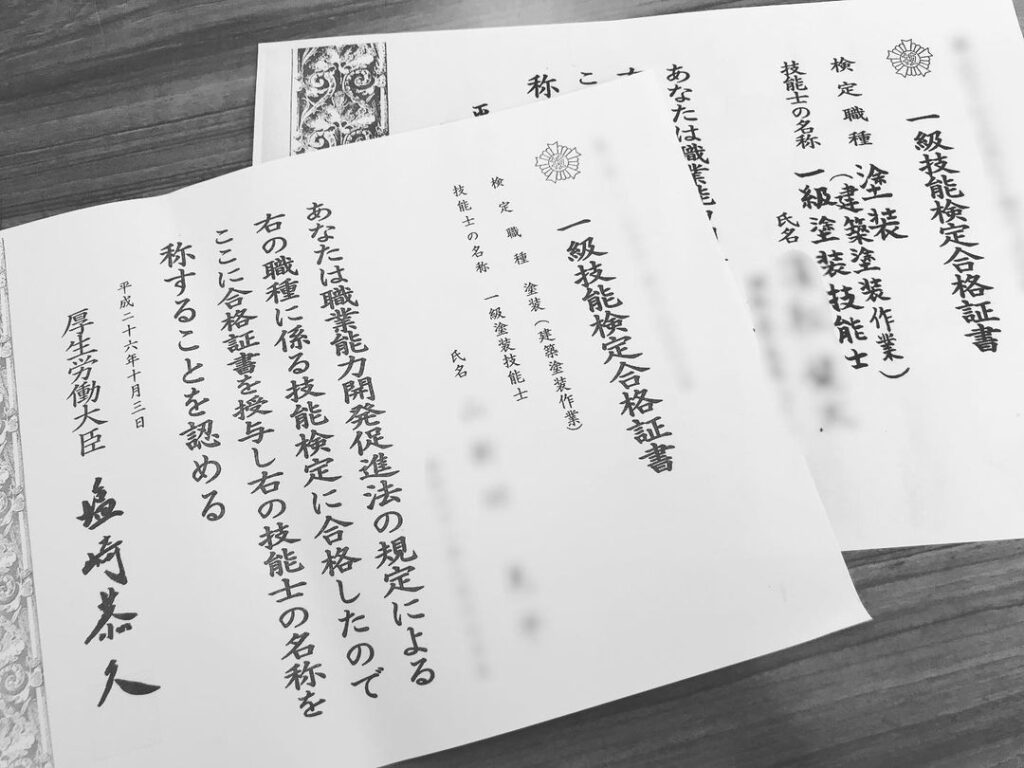 一級技能検定合格証書
検定職種　塗装（建築塗装作業）
技能士の名称　一級塗装技能士
氏名
あなたは職業能力開発促進法の規定による
右の職種に係る技能検定に合格したので
ここに合格証書を授与し右の技能士の名称を
称することを認める
平成二十六年十月三日
厚生労働大臣　塩崎恭久
一級技能検定合格証書
検定職種　塗装（建築塗装作業）
技能士の名称　一級塗装技能士
氏名
あなたは職業能
右
こ
称